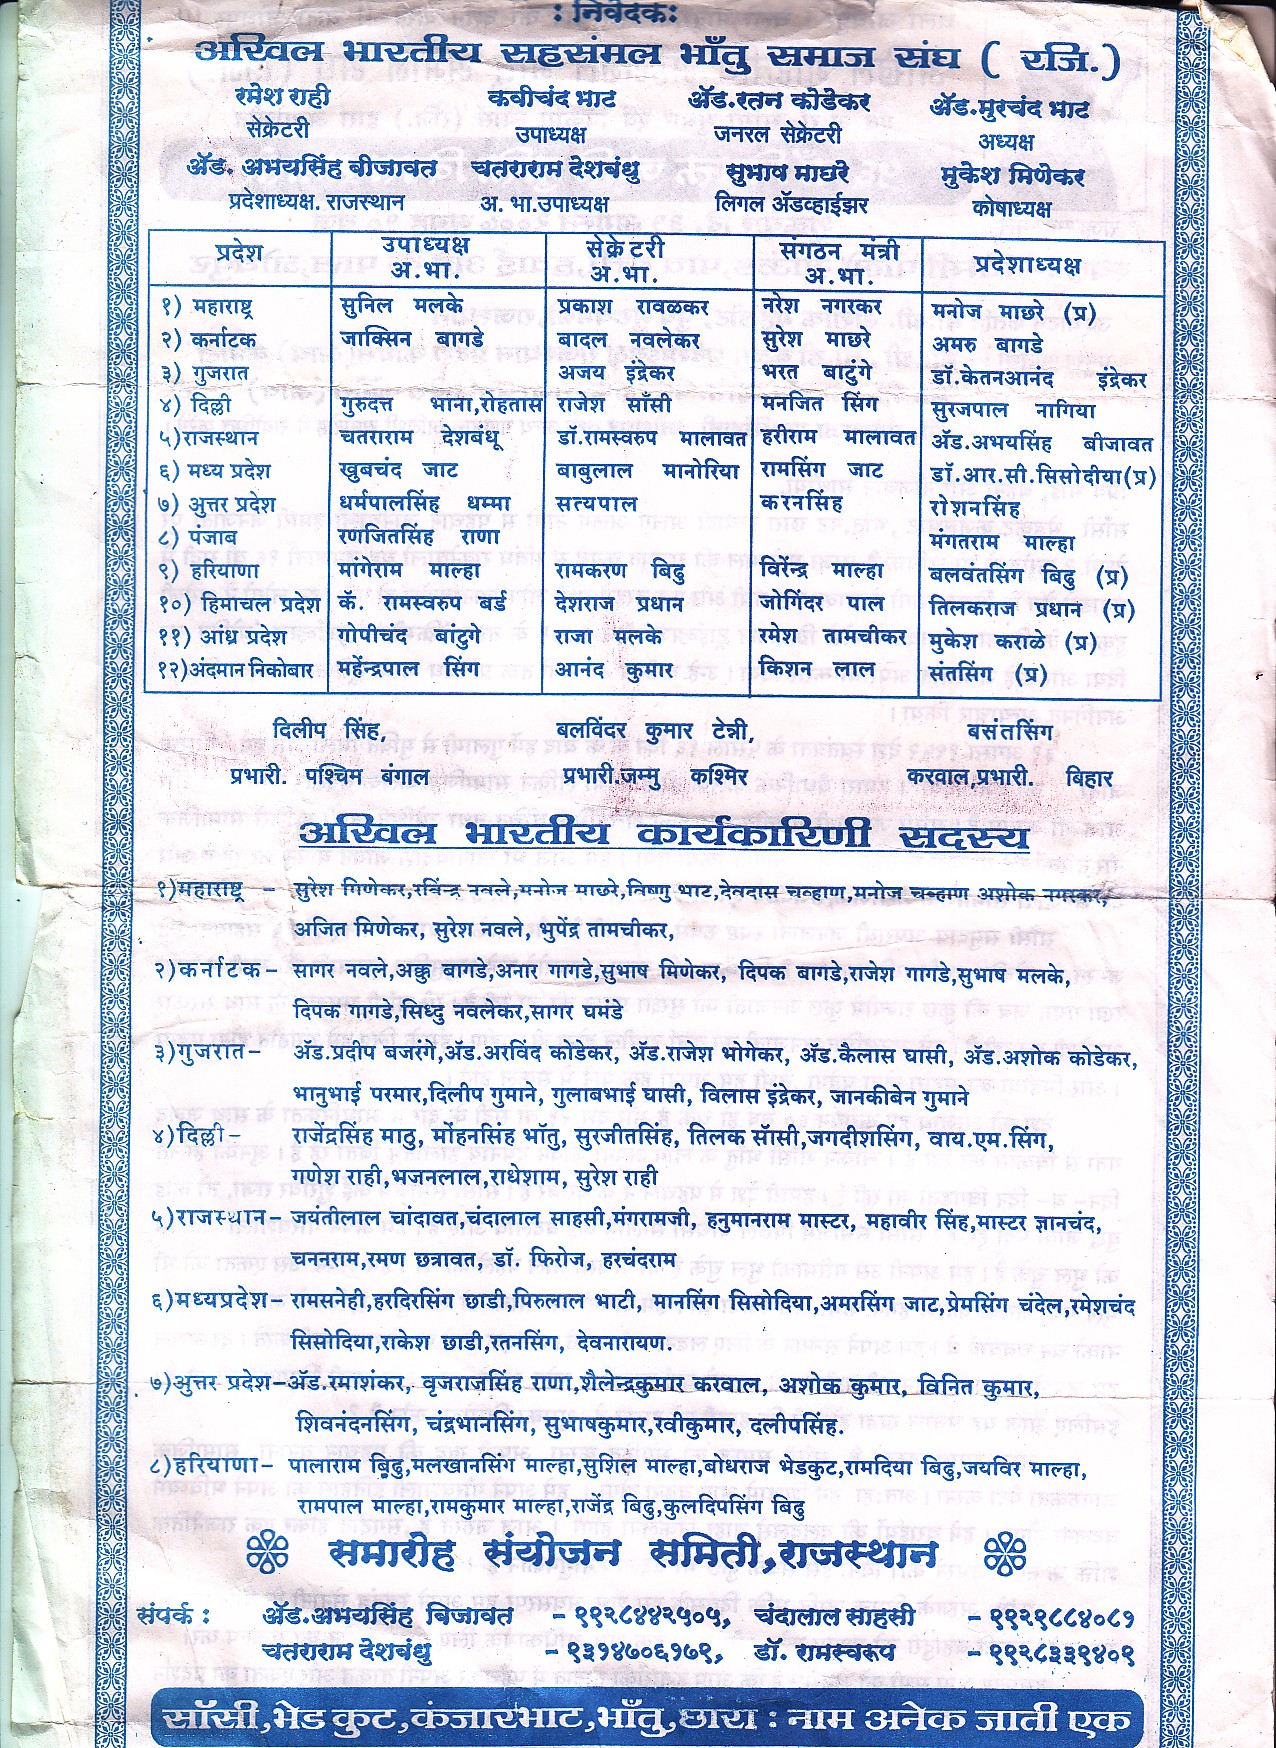 : निवेदक:
अखिल भारतीय सहसंमल भाँतु समाज संघ ( रजि.)
रमेश राही कवीचंद भाट ॲड.रतन कोडेकर ॲड.मुरचंद भाट
सेक्रेटरी उपाध्यक्ष जनरल सेक्रेटरी अध्यक्ष
ॲड. अभयसिंह बीजावत चतराराम देशबंधु सुभाष माघरे मुकेश मिणेकर
प्रदेशाध्यक्ष. राजस्थान अ. भा.उपाध्यक्ष लिगल ॲडव्हाईझर कोषाध्यक्ष
प्रदेश उपाध्यक्ष अ.भा. सेक्रेटरी अ.भा. संगठन मंत्री अ.भा. प्रदेशाध्यक्ष
१) महाराष्ट्र सुनिल मलके प्रकाश रावळकर नरेश नगरकर मनोज माछरे (प्र)
२) कर्नाटक जाक्सिन बागडे बादल नवलेकर सुरेश माछरे अमरु बागडे
३) गुजरात अजय इंद्रेकर भरत बाटुंगे डॉ.केतनआनंद इंद्रेकर
४) दिल्ली गुरुदत्त भाना,रोहतास राजेश साँसी मनजित सिंग सुरजपाल नागिया
५)राजस्थान चतराराम देशबंधू डॉ.रामस्वरुप मालावत हरीराम मालावत ॲड.अभयसिंह बीजावत
६) मध्य प्रदेश खुबचंद जाट बाबुलाल मानोरिया रामसिंग जाट डॉ.आर.सी.सिसोदीया(प्र)
७) अुत्तर प्रदेश धर्मपालसिंह धम्मा सत्यपाल करनसिंह रोशनसिंह
८) पंजाब रणजितसिंह राणा मंगतराम माल्हा
९) हरियाणा मांगेराम माल्हा रामकरण बिढु विरेंन्द्र माल्हा बलवंतसिंग बिढु (प्र)
१०) हिमाचल प्रदेश कॅ. रामस्वरुप बर्ड देशराज प्रधान जोगिंदर पाल तिलकराज प्रधान (प्र)
११) आंध्र प्रदेश गोपीचंद बांटुगे राजा मलके रमेश तामचीकर मुकेश कराळे (प्र)
१२)अंदमान निकोबार महेंन्द्रपाल सिंग आनंद कुमार किशन लाल संतसिंग (प्र)
दिलीप सिंह, बलविंदर कुमार टेन्नी, बसंतसिंग
प्रभारी. पश्चिम बंगाल प्रभारी.जम्मु कश्मिर करवाल,प्रभारी. बिहार
अखिल भारतीय कार्यकारिणी सदस्य
१)महाराष्ट्र – सुरेश मिणेकर,रविंन्द्र नवले,मनोज माछरे,विष्णु भाट,देवदास चव्हाण,मनोज चव्हाण अशोक नगरकर,
अजित मिणेकर, सुरेश नवले, भुपेंद्र तामचीकर,
२)कर्नाटक– सागर नवले,अक्कु बागडे,अनार गागडे,सुभाष मिणेकर, दिपक बागडे,राजेश गागडे,सुभाष मलके,
दिपक गागडे,सिध्दु नवलेकर,सागर घमंडे
३)गुजरात– ॲड.प्रदीप बजरंगे,ॲड.अरविंद कोडेकर, ॲड.राजेश भोगेकर, ॲड.कैलास घासी, ॲड.अशोक कोडेकर,
भानुभाई परमार,दिलीप गुमाने, गुलाबभाई घासी, विलास इंद्रेकर, जानकीबेन गुमाने
४)दिल्ली– राजेंद्रसिंह माठु, मोंहनसिंह भॉतु, सुरजीतसिंह, तिलक सॅासी,जगदीशसिंग, वाय.एम.सिंग,
गणेश राही,भजनलाल,राधेशाम, सुरेश राही
५)राजस्थान– जयंतीलाल चांदावत,चंदालाल साहसी,मंगरामजी, हनुमानराम मास्टर, महावीर सिंह,मास्टर ज्ञानचंद,
चननराम,रमण छत्रावत, डॉ. फिरोज, हरचंदराम
६)मध्यप्रदेश– रामसनेही,हरदिरसिंग छाडी,पिरुलाल भाटी, मानसिंग सिसोदिया,अमरसिंग जाट,प्रेमसिंग चंदेल,रमेशचंद
सिसोदिया,राकेश छाडी,रतनसिंग, देवनारायण.
७)अुत्तर प्रदेश–ॲड.रमाशंकर, वृजराजसिंह राणा,शैलेन्द्रकुमार करवाल, अशोक कुमार, विनित कुमार,
शिवनंदनसिंग, चंद्रभानसिंग, सुभाषकुमार,रवीकुमार, दलीपसिंह.
८)हरियाणा– पालाराम बिढु,मलखानसिंग माल्हा,सुशिल माल्हा,बोधराज भेडकुट,रामदिया बिढु,जयविर माल्हा,
रामपाल माल्हा,रामकुमार माल्हा,राजेंद्र बिढु,कुलदिपसिंग बिढु
समारोह संयोजन समिती,राजस्थान
संपर्क : ॲड.अभयसिंह बिजावत – ९९२८४४२५०५, चंदालाल साहसी – ९९२९८८४०८१
चतराराम देशबंधु – ९३१४७०६१७९, डॉ. रामस्वरूप – ९९२८३३९४०९
सॉसी,भेडकुट,कंजारभाट,भाँतु,छारा : नाम अनेक जाती एक